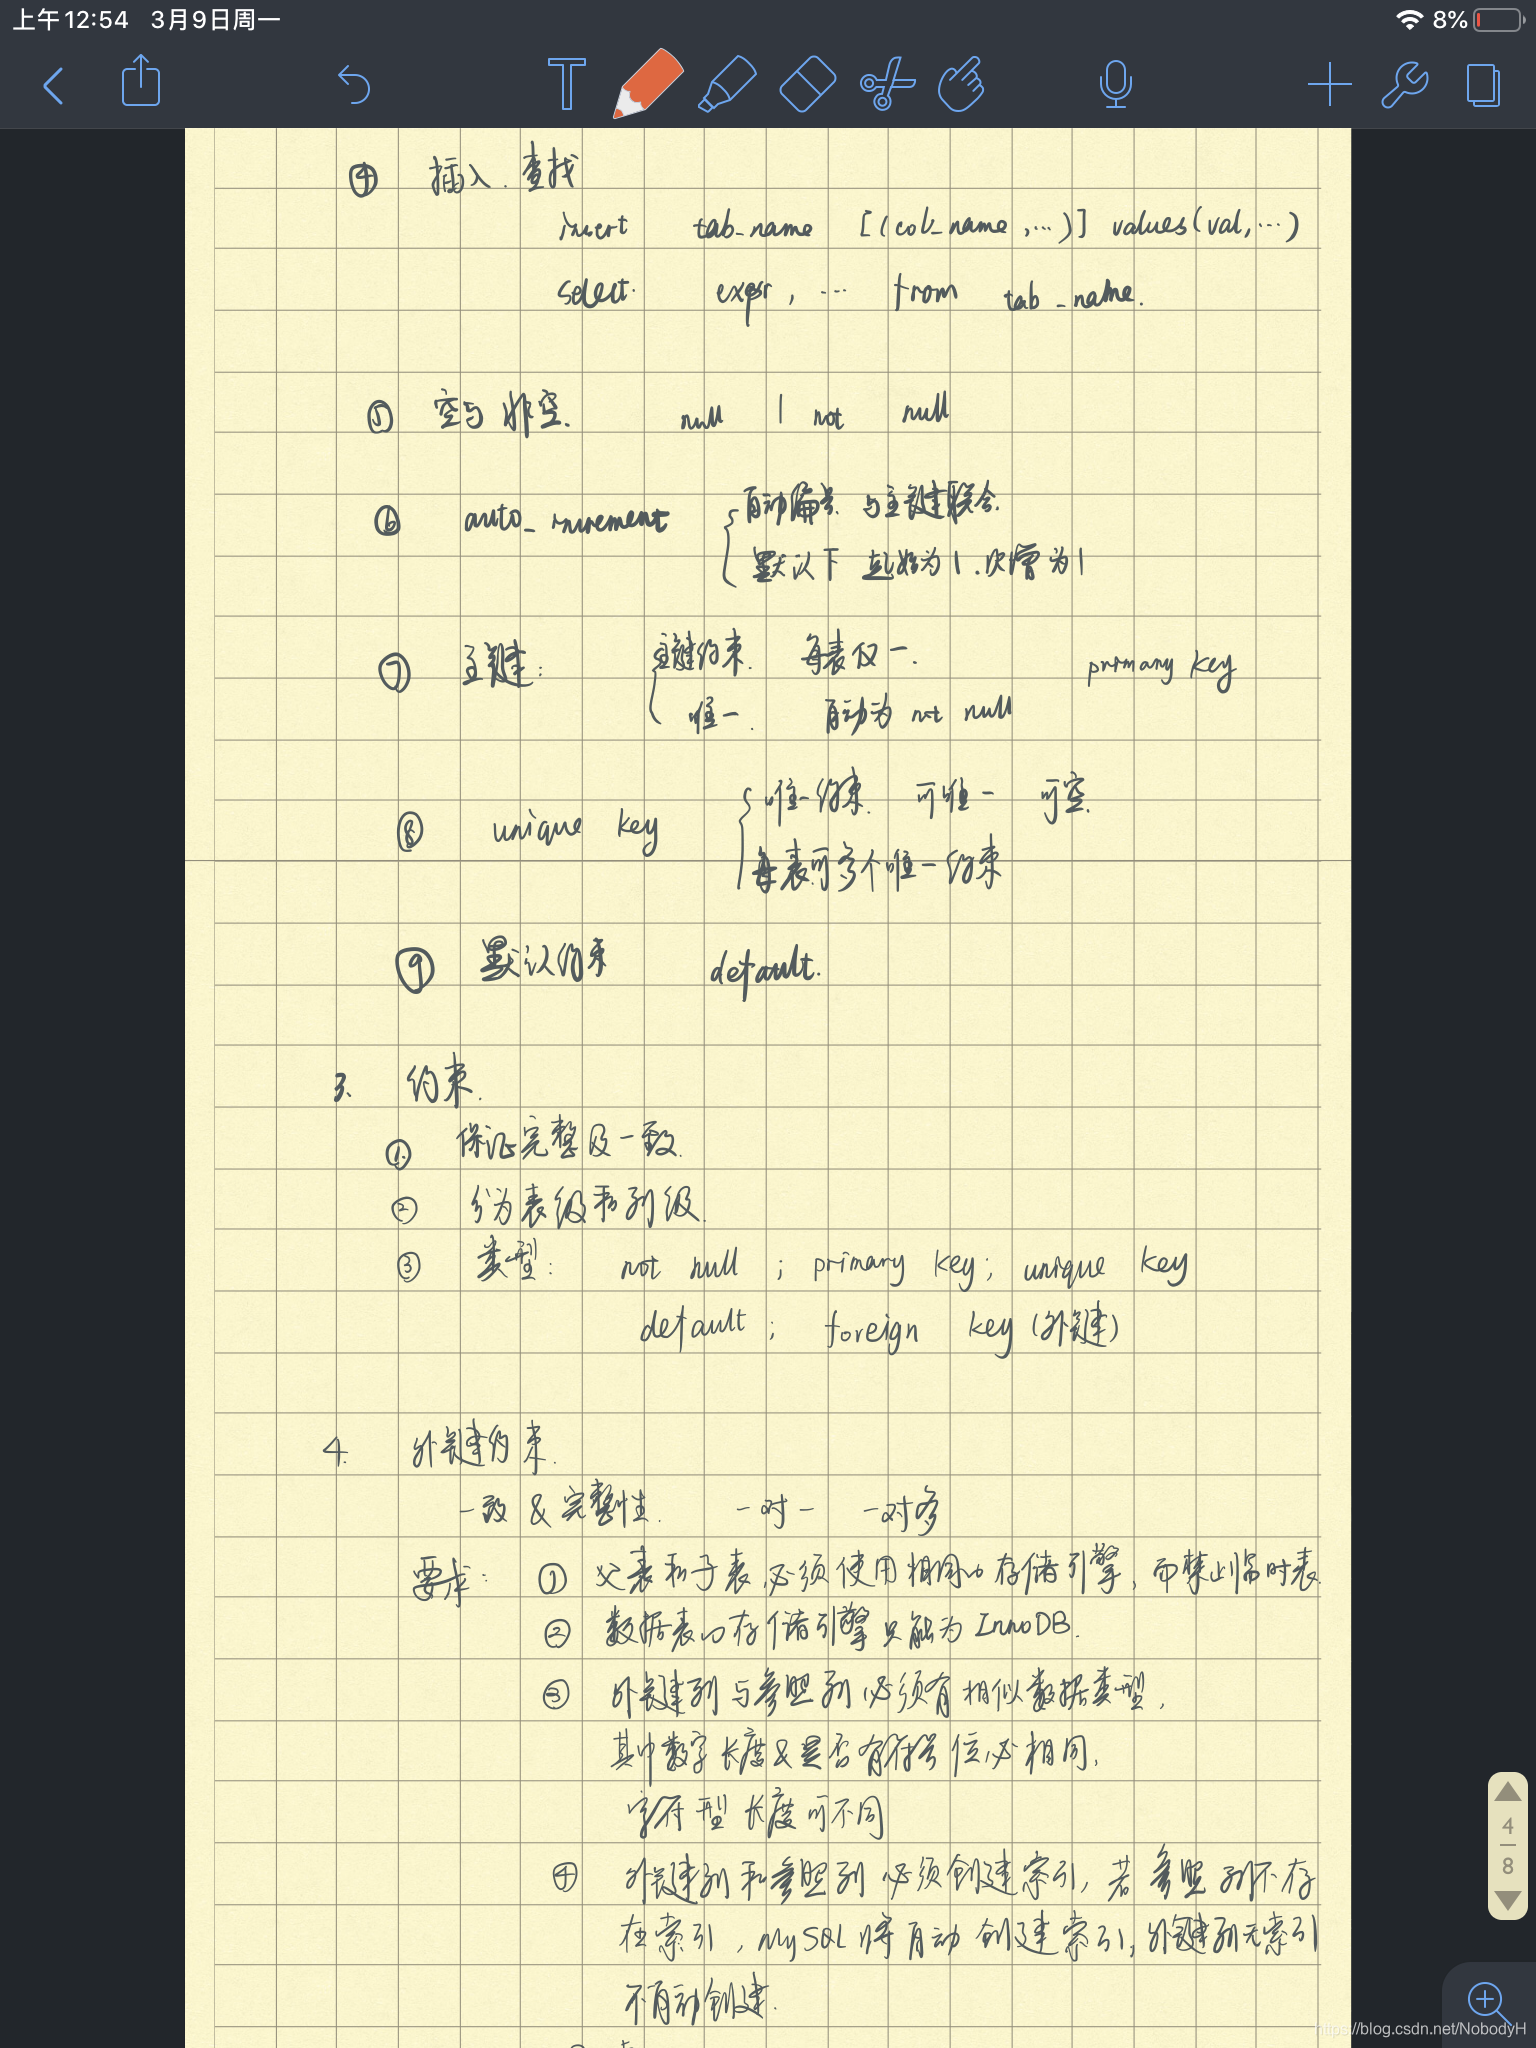 上午12:54 3月9日周一
8%
④ 插入.查找
insert tab_name [(col_name,…)] values(val,…)
select expr, … from tab_name.
⑤ 空与非空. null | not null
⑥ auto_increment 自动编号 与主键联合.
默认下 起始为1.次增为1
⑦ 主键: 主键约束. 每表仅一. primary key
唯一. 自动为 not null
⑧ unique key 唯一约束. 可唯一 可空.
每表可多个唯一约束
⑨ 默认约束 default.
3、 约束.
① 保证完整及一致.
② 分为表级和列级.
③ 类型: not null ; primary key; unique key
default ; foreign key (外键)
4. 外键约束.
一致 & 完整性. 一对一 一对多
要求: ① 父表和子表必须使用相同的存储引擎,而禁止临时表.
② 数据表的存储引擎只能为InnoDB.
③ 外键列与参照列必须有相似数据类型,
其中数字长度&是否有符号位必相同,
字符型长度可不同
④ 外键列和参照列必须创建索引,若参照列不存
在索引,MySQL将自动创建索引;外键列无索引
不自动创建.
4
8
https://blog.csdn.net/NobodyH